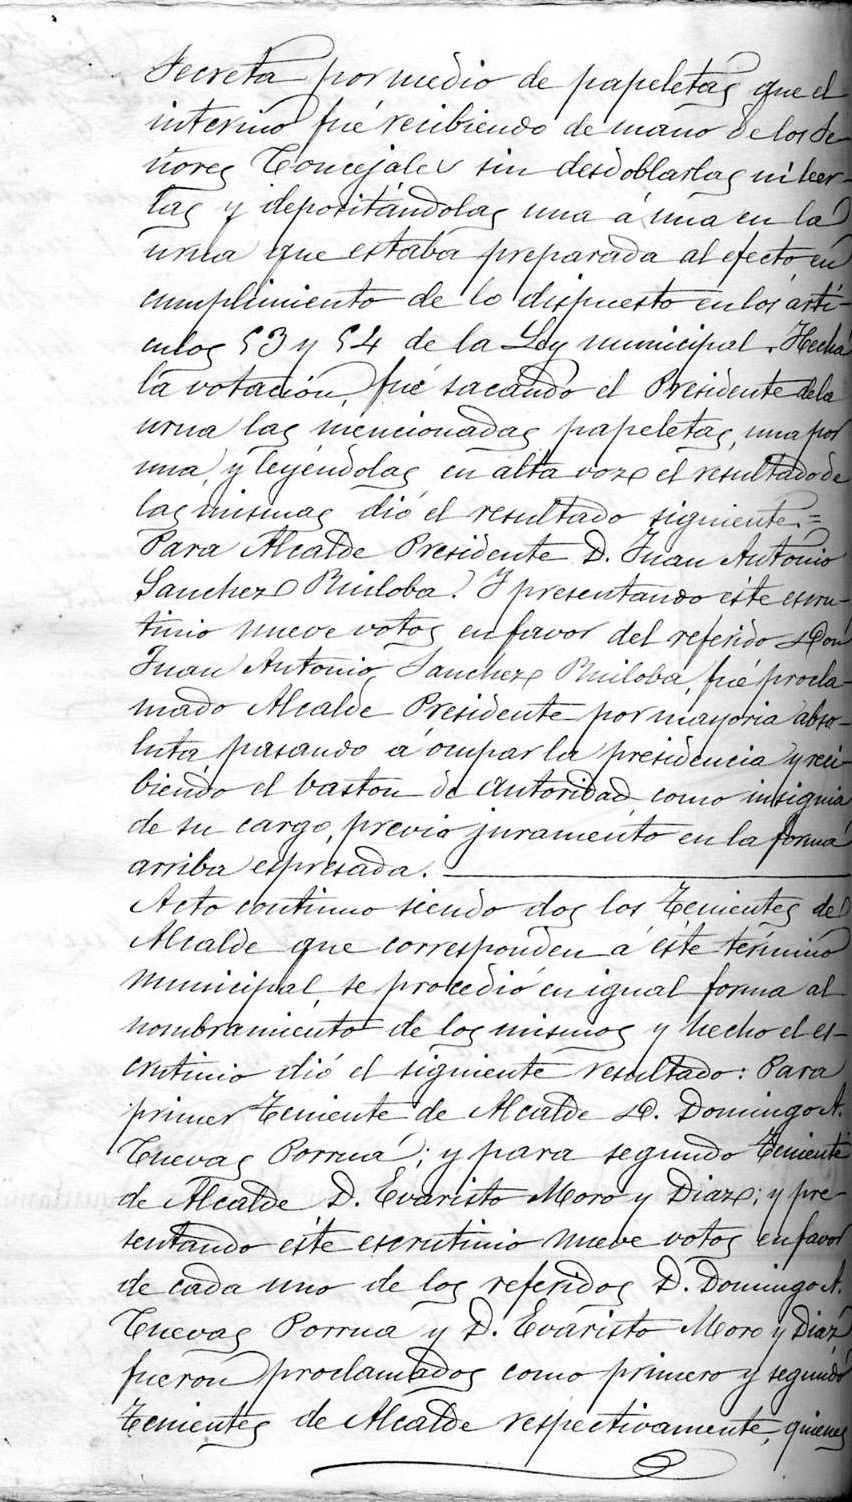 Secreta por medio de papeletas que el
interino fué recibiendo de mano de los Se-
ñores Concejales sin desdoblarlas ni leer-
las y depositándolas una á una en la
urna que estaba preparada al efecto, en
cumplimiento de lo dispuesto en los arti-
culos 53 y 54 de la Ley municipal. Hecha
la votación, fué sacando el Presidente de la
urna las mencionadas papeletas, una por
una, y leyéndolas en alta voz, el resultado de
las mismas dió el resultado siguiente.=
Para Alcalde Presidente D. Juan Antonio
Sanchez Ruiloba. Y presentando éste escru-
tinio nueve votos en favor del referido Don
Juan Antonio Sanchez Ruiloba, fué procla-
mado Alcalde Presidente por mayoria abso-
luta pasando á ocupar la presidencia y reci-
biendo el baston de autoridad como insignia
de su cargo, previo juramento en la forma
arriba espresada.
Acto continuo siendo dos los Tenientes de
Alcalde que corresponden á éste término
municipal, se procedió en igual forma al
nombramiento de los mismos y hecho el es-
crutinio dió el siguiente resultado: Para
primer Teniente de Alcalde D. Domingo A.
Cuevas Porrua; y para segundo Teniente
de Alcalde D. Evaristo Moro y Diaz; y pre-
sentando éste escrutinio nueve votos en favor
de cada uno de los referidos D. Domingo A.
Cuevas Porrua y D. Evaristo Moro y Diaz
fueron proclamados como primero y segundo
Tenientes de Alcalde respectivamente, quienes